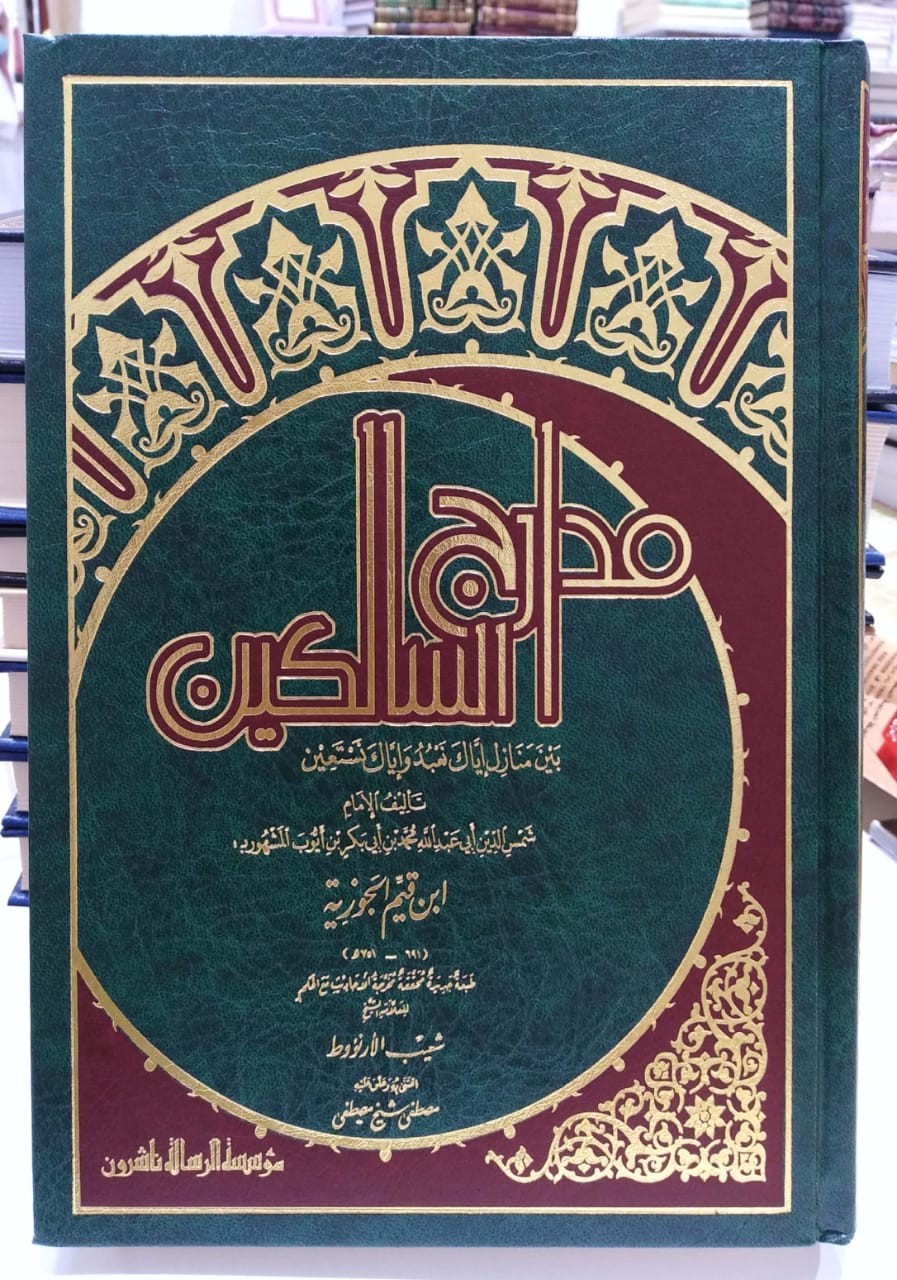 مدارج
السالكين
بَيْنَ مَنَازِل إِيَّاكَ نَعْبُدُ وَإِيَّاكَ نَسْتَعِيْن
تَأليفُ الإمَامِ
شَمْسِ الدِّيْنِ أَبِي عَبْدِ اللَّهِ مُحَمَّد بْنِ أَبِي بَكْرٍ بْنِ أَيُّوبَ المَشْهُور بـ:
ابن قيّم الجَوزيّة
(٦٩١ - ٧٥١ هـ)
طبعَةٌ جَديدَةٌ مُحَقَّقَةٌ مُخَرَّجَةُ الأحَاديثِ مَعَ الحُكمِ
للعَلّامَةِ الشَّيْخ
شعيب الأرنؤوط
اعتنى به وعلّق عليه
مصطفى شيخ مصطفى
مؤسسة الرسالة ناشرون